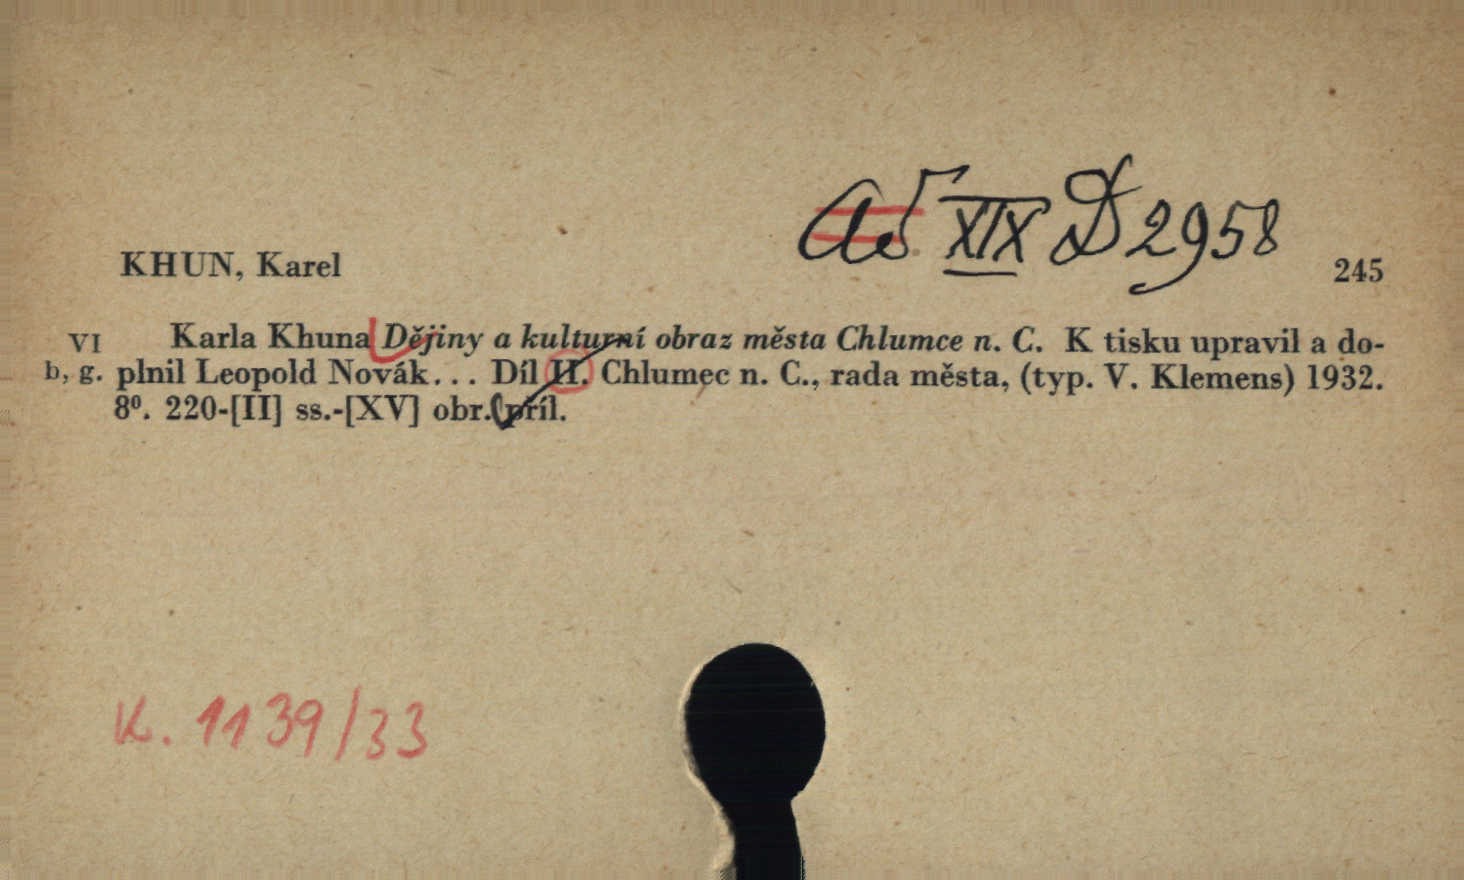 Ač XIX D 2958
KHUN, Karel 245
VI Karla Khuna Dějiny a kulturní obraz města Chlumce n. C. K tisku upravil a do-
b, g. plnil Leopold Novák... Díl II. Chlumec n. C., rada města, (typ. V. Klemens) 1932.
8⁰. 220-[II] ss.-[XV] obr. příl.
K. 1139/33